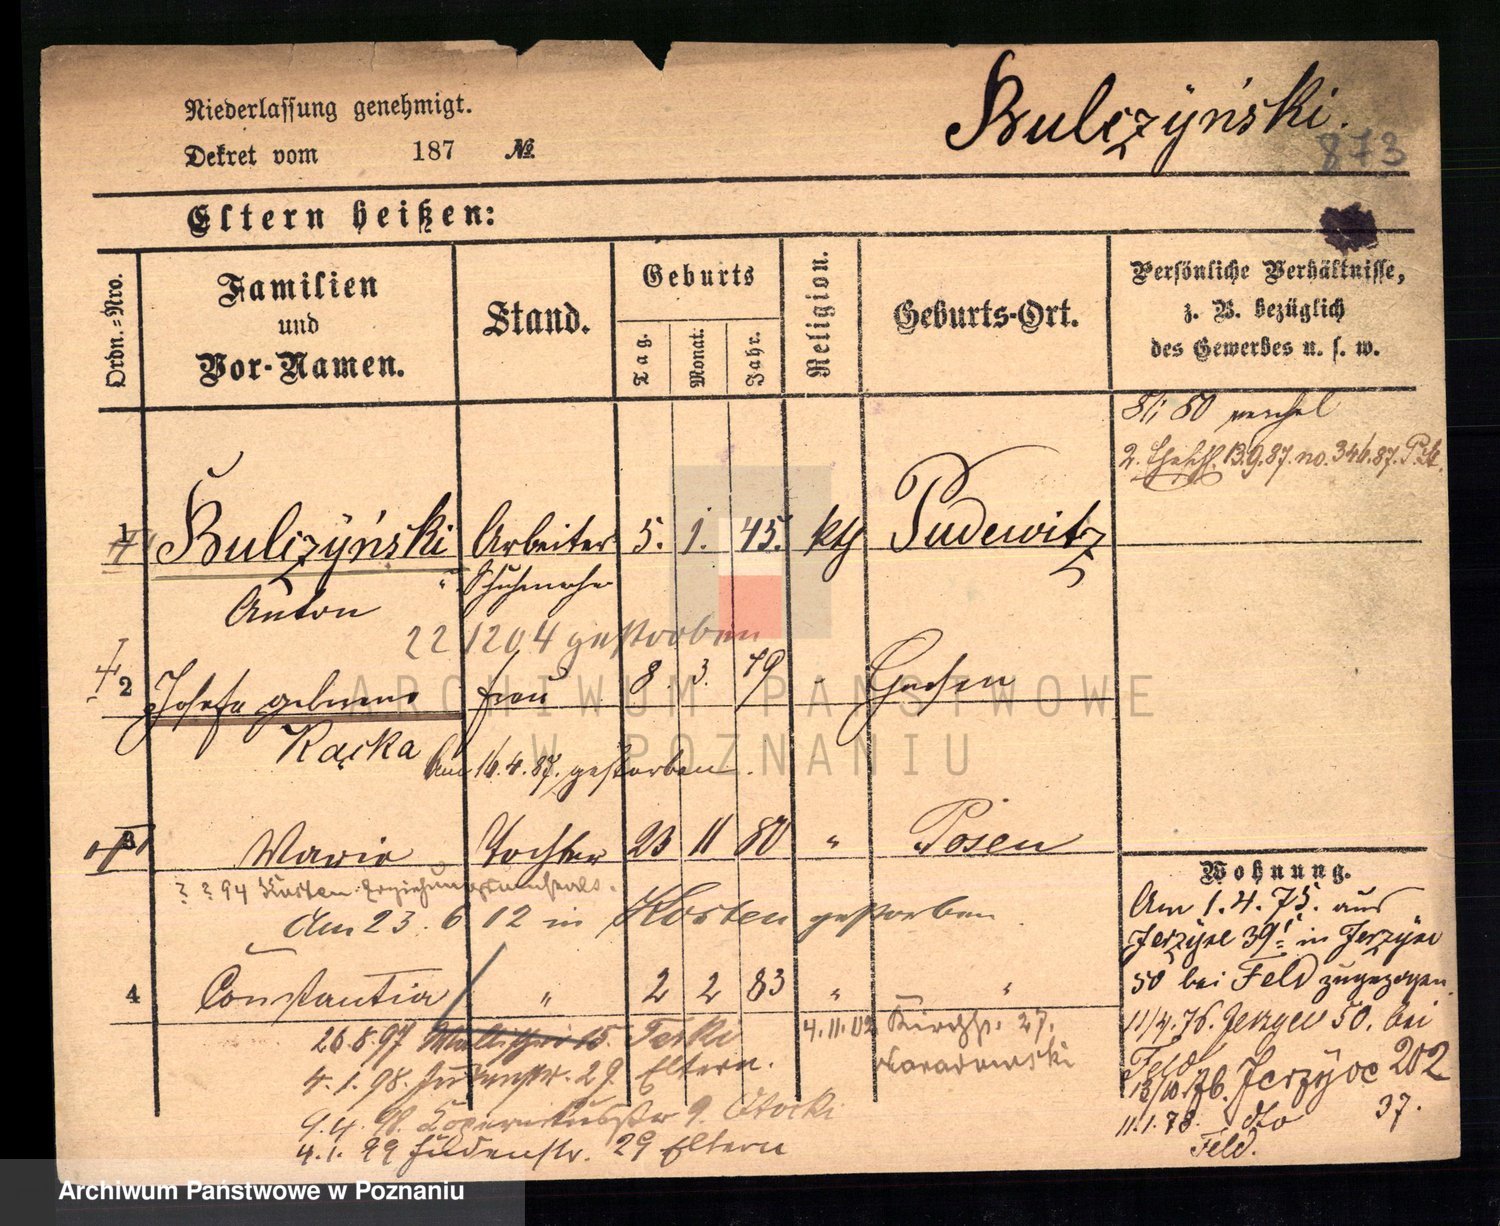 Niederlassung genehmigt.
Dekret vom 187 №
Bulczyński.
873
Eltern heißen:
Ordn.=Nro.
Familien
und
Vor-Namen.
Stand.
Geburts
Tag.
Monat.
Jahr.
Religion.
Geburts-Ort.
Persönliche Verhältnisse,
z. B. bezüglich
des Gewerbes u. s. w.
80
2. 13.9.87. no. 346.87.
1 Bulczyński Arbeiter 5. 1. 45. kth Pudewitz
Anton
22 12 04 gestorben
2 Josefa geborene Frau 8 3. 49
Kaçka Am 16.4.87. gestorben.
3 Maria Tochter 23 11 80 " Posen
94 Kosten Erziehungsanstalt.
Am 23. 6 12 in Kosten gestorben.
4 Constantia " 2 2 83 " "
26.8.97 15. Terki
4.11.02 Kirchstr. 27.
4.1.98. Judenstr. 29. Eltern.
9.4.98. 9.
4.1.99 Judenstr. 29 Eltern
Wohnung.
Am 1.4.75. aus
Jerzyce 39 in Jerzyce
50 bei Feld zugezogen.
11/4.76. Jerzyce 50. bei
Feld
13/10.76. Jerzyce 202
11.1.78. dto 37.
Feld.
ARCHIWUM PAŃSTWOWE
W POZNANIU
Archiwum Państwowe w Poznaniu